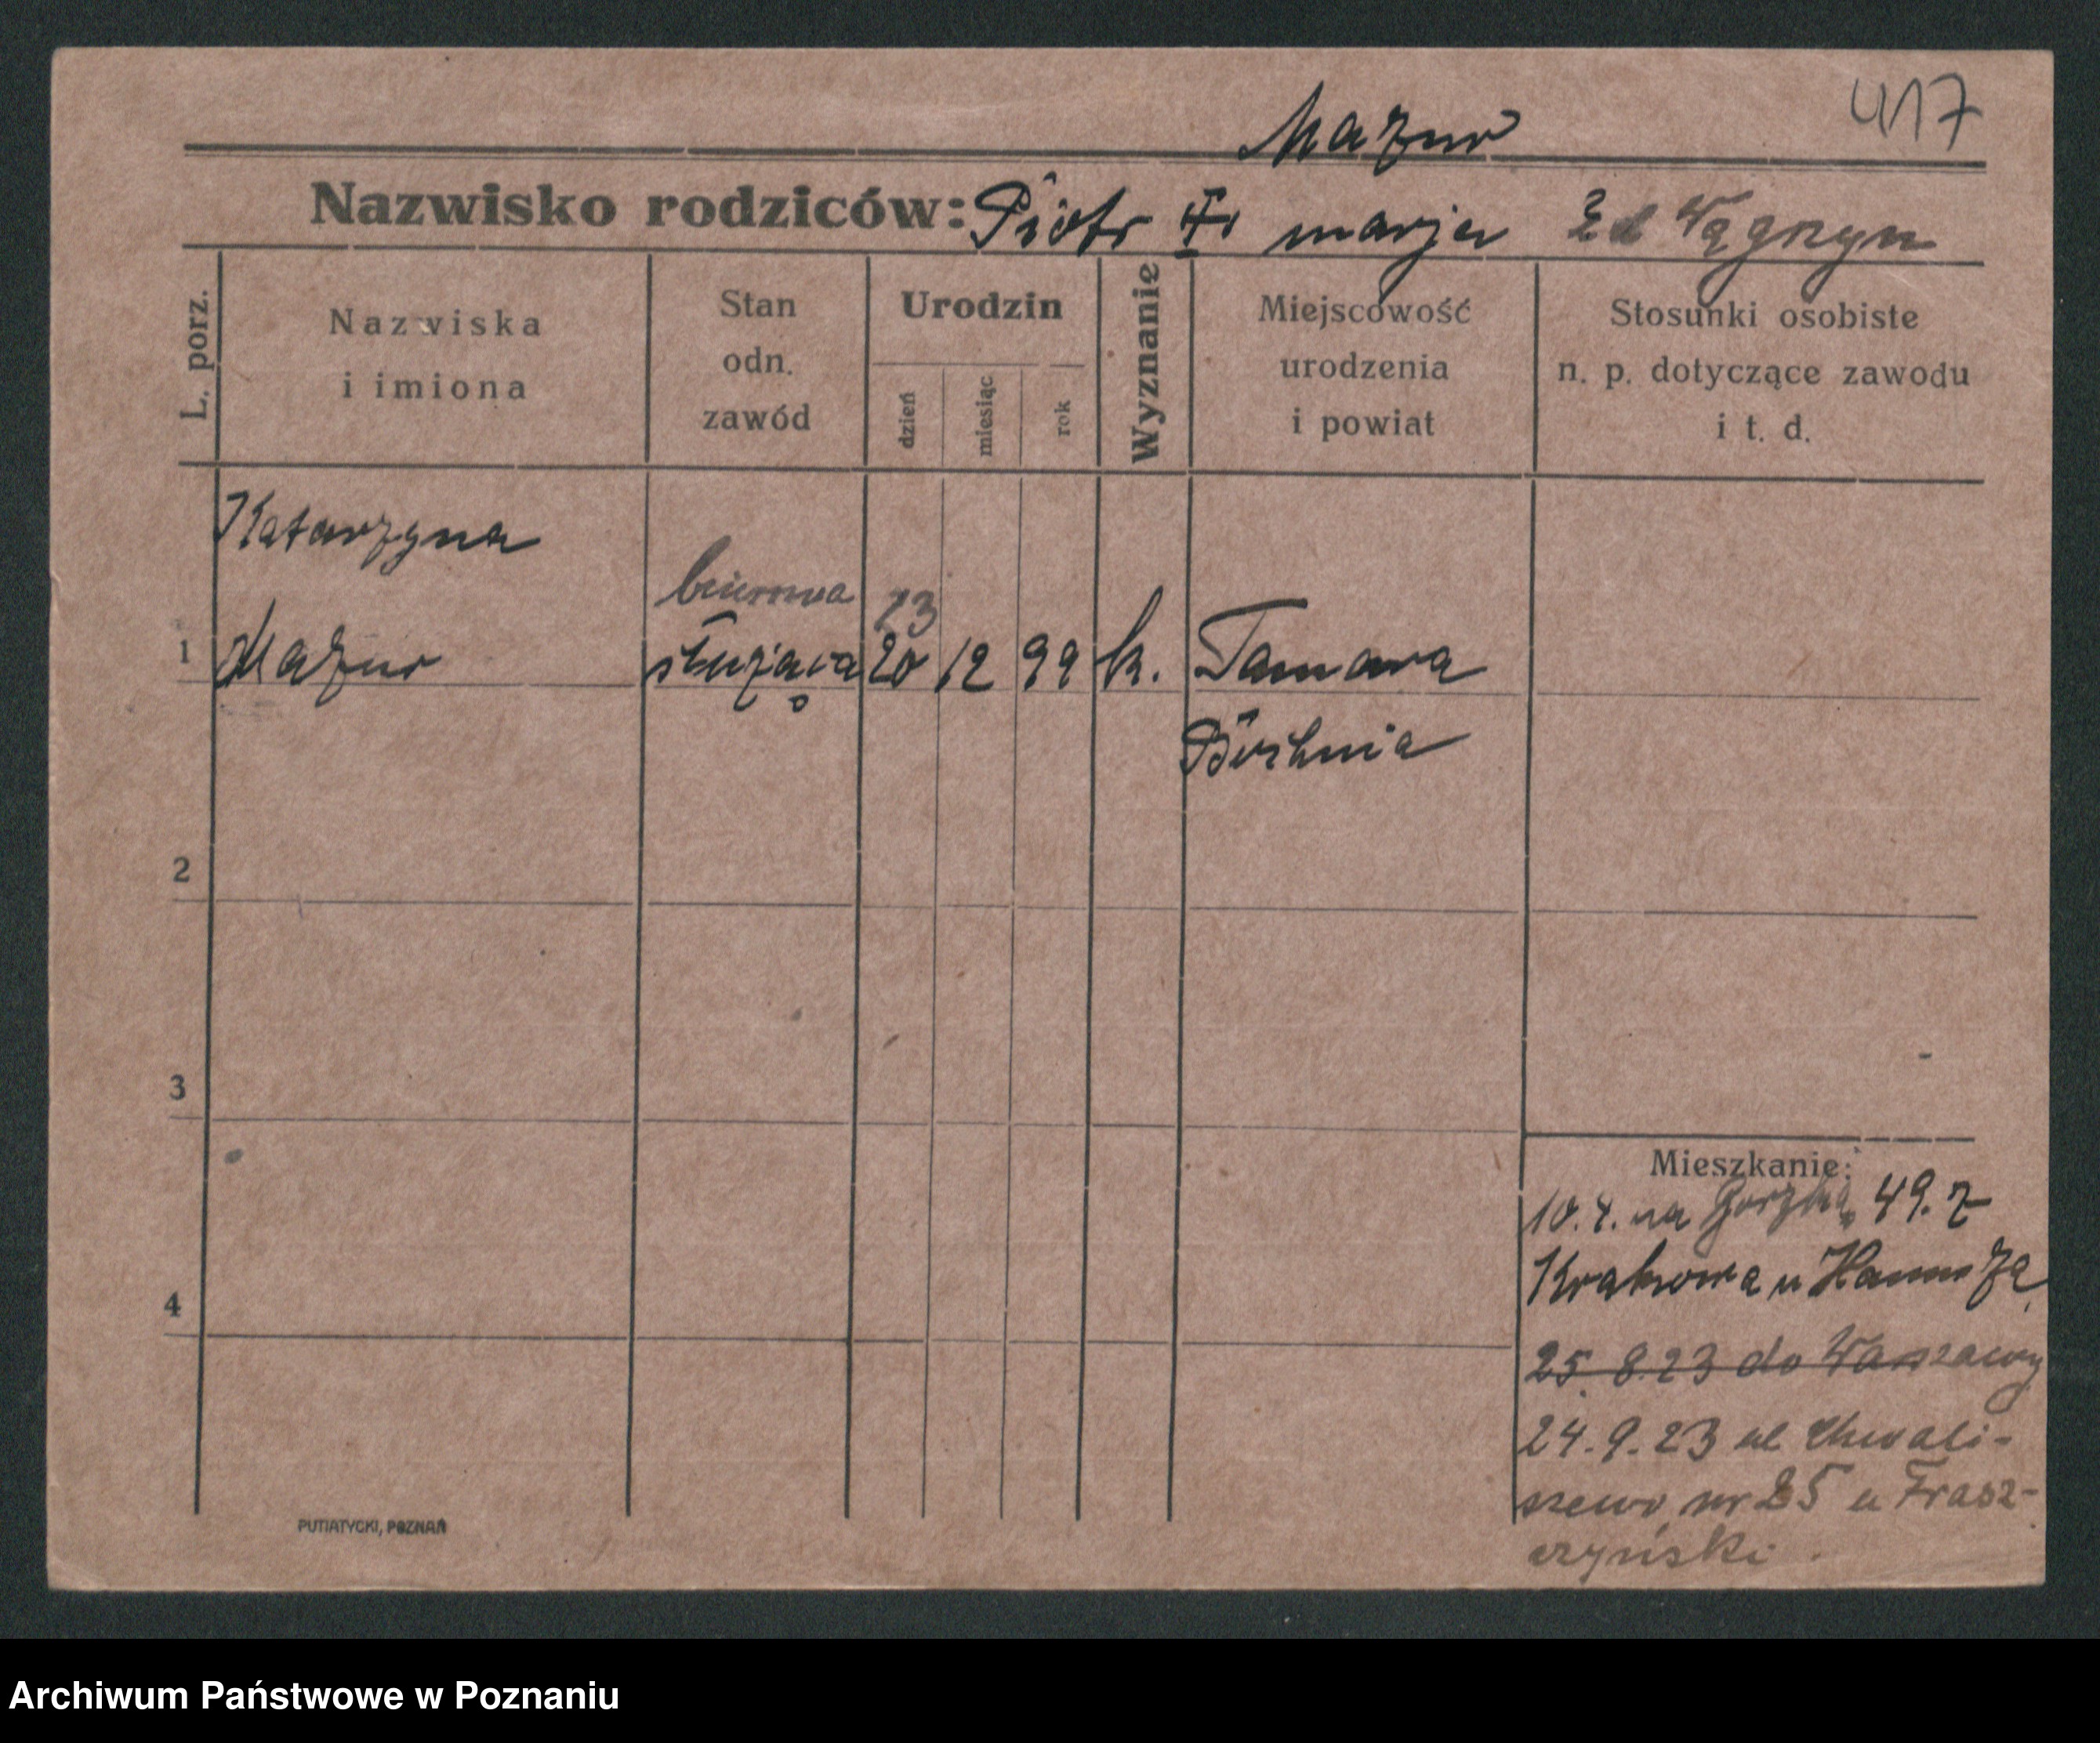 417
Mazur
Nazwisko rodziców: Piotr Fr marja zd Wągrzyn
L. porz.
Nazwiska i imiona
Stan odn. zawód
Urodzin
dzień
miesiąc
rok
Wyznanie
Miejscowość urodzenia i powiat
Stosunki osobiste n. p. dotyczące zawodu i t. d.
Katarzyna
biurowa
23
1 Mazur służąca 20 12 99 k. Tamawa
Bochnia
2
3
4
Mieszkanie:
10.4. na 49. Z
Krakowa u
25 8.23 do Waszawy
24.9.23 ul Chwali-
szewo nr 25 u Frasz-
czyński.
PUTIATYCKI, POZNAŃ
Archiwum Państwowe w Poznaniu